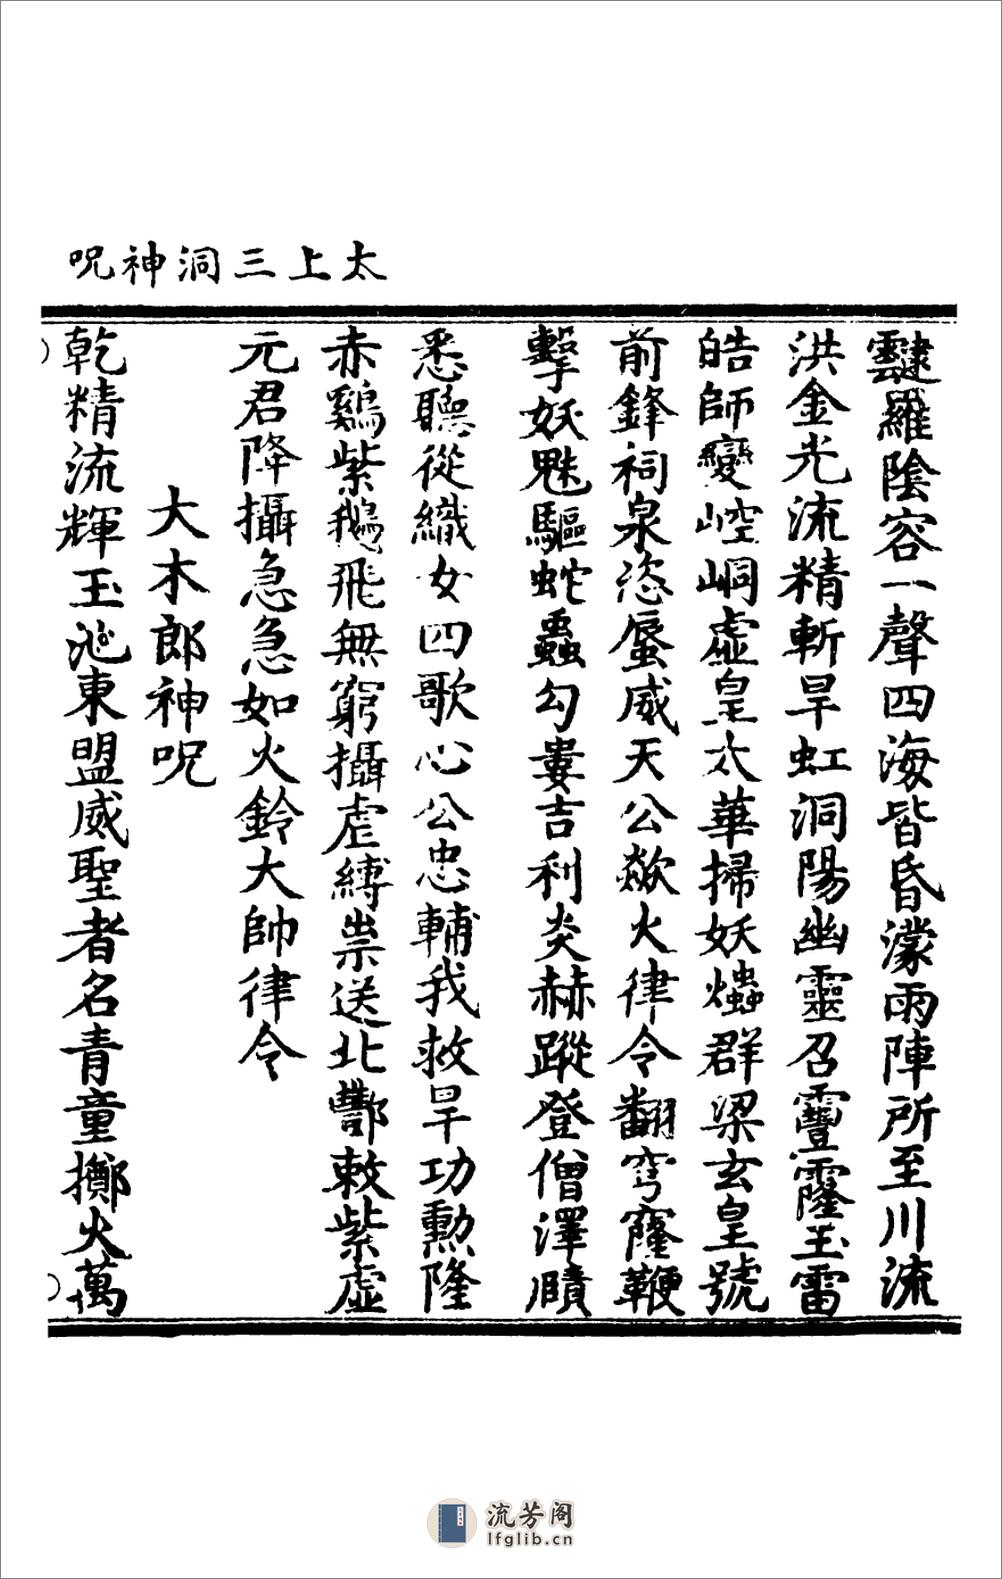 太上三洞神呪
靆羅陰容一聲四海皆昏濛雨陣所至川流
洪金光流精斬旱虹洞陽幽靈召霻霳玉雷
皓師變崆峒虛皇太華掃妖爞群梁玄皇號
前鋒祠泉恣蜃威天公歘火律令翻穹窿鞭
擊妖魃驅蛇蟲勾婁吉利炎赫蹤登僧澤賾
悉聽從織女四歌心公忠輔我救旱功勳隆
赤鷄紫鵝飛無窮攝虐縛祟送北酆敕紫虛
元君降攝急急如火鈴大帥律令
大木郎神呪
乾精流輝玉池東盟威聖者名青童擲火萬
流芳阁
lfglib.cn